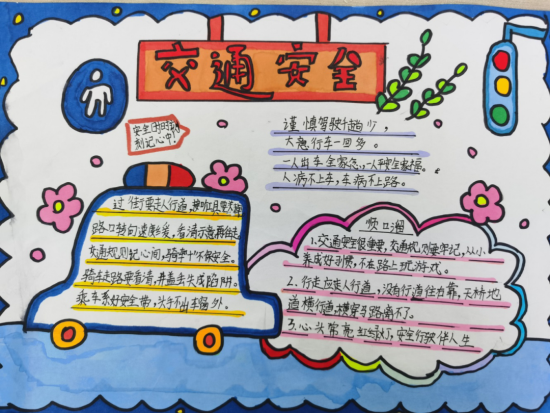 交通安全
安全时时
刻记心中!
谨慎驾驶个超少,
大意行车一回多。
一人出车全家念,一人平安全家福。
人病不上车,车病不上路。
过街要走人行道,
路口转向
看清示意再自走
交通规则记心间,骑车
骑车走路要看清,井盖丢失成陷阱。
乘车系好安全带,头手不出车窗外。
顺口溜
1.交通安全很重要,交通规则要牢记,从小
养成好习惯,不在路上玩游戏。
2.行走应走人行道,没有行道往右靠,天桥地
道横行道,横穿马路离不了。
3.心头常亮红绿灯,安全行驶伴人生